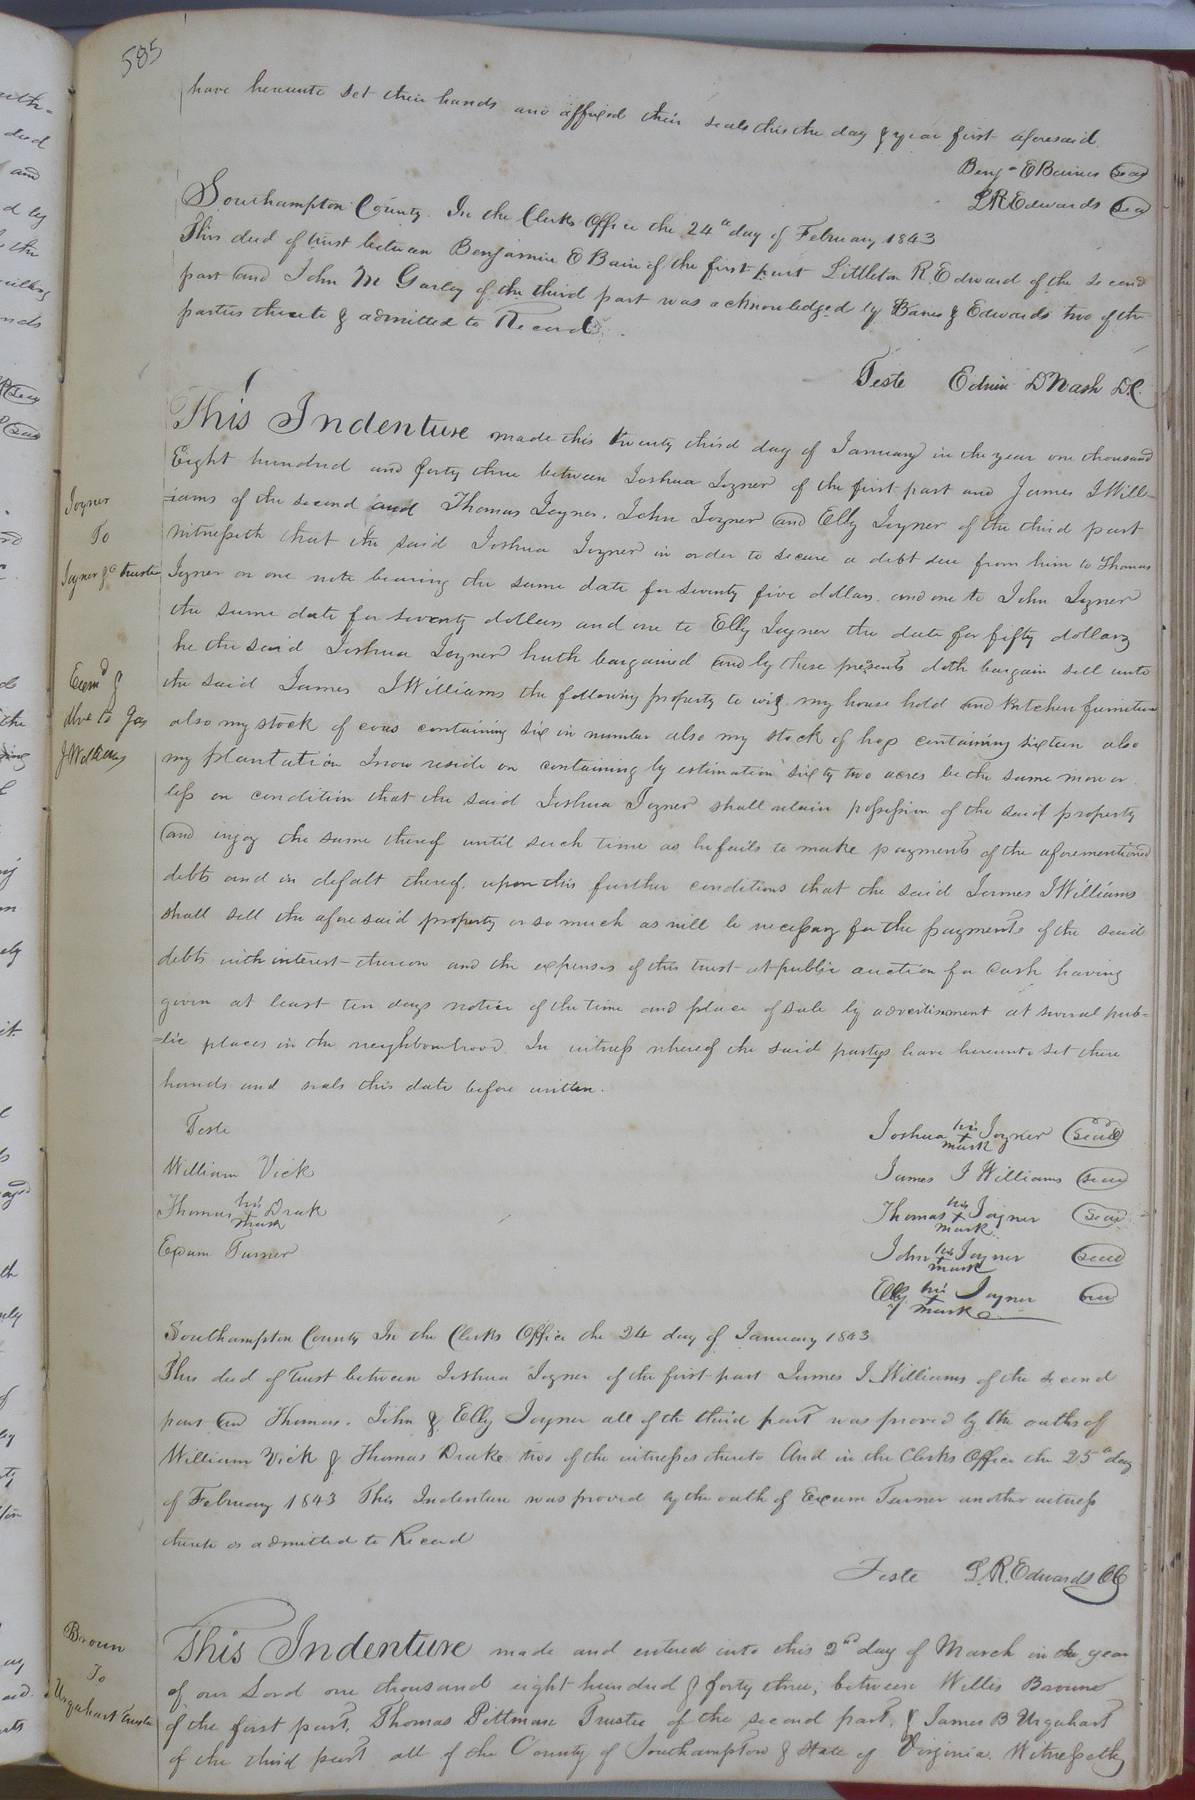 585
have hereunto set their hands and affixed their seals this the day & year first aforesaid.
Benjn E Baines seal
L R Edwards seal
Southampton County. In the Clerks Office the 24th day of February 1843
This deed of trust between Benjamin E Bain of the first part Littleton R. Edward of the second
part and John M Gurley of the third part was acknowledged by Banes & Edwards two of the
parties thereto & admitted to Record.
Teste Edwin D Nash D.C.
Joyner
To
Joyner &c trustee
Examd &
dlvd to Jas
J Williams
This Indenture made this twenty third day of January in the year one thousand
Eight hundred and forty three between Joshua Joyner of the first part and James J Will-
=iams of the second and Thomas Joyner, John Joyner and Elly Joyner of the third part
witnesseth that the said Joshua Joyner in order to secure a debt due from him to Thomas
Joyner on one note bearing the same date for seventy five dollars and one to John Joyner
the same date for seventy dollars and one to Elly Joyner the date for fifty dollars
he the said Joshua Joyner hath bargained and by these presents doth bargain sell unto
the said James J Williams the following property to wit, my house hold and kitchen furniture
also my stock of cows containing six in number also my stock of hogs containing sixteen also
my plantation I now reside on containing by estimation sixty two acres be the same more or
less on condition that the said Joshua Joyner shall retain possession of the said property
and injoy the same thereof until such time as he fails to make payments of the aforementioned
debts and in defalt thereof, upon this further conditions that the said James J Williams
shall sell the afore said property or so much as will be necessary for the payments of the said
debts with interest thereon and the expenses of this trust at public auction for cash having
given at least ten days notice of the time and place of sale by advertisment at several pub-
=lic places in the neighbourhood. In witness whereof the said partys have hereunto set there
hands and seals this date before written.
Teste
William Vick
Thomas his + mark Drak
Exum Turner
Joshua his + mark Joyner seal
James J Williams seal
Thomas his + mark Joyner seal
John his + mark Joyner seal
Elly his + mark Joyner seal
Southampton County In the Clerks Office the 24 day of January 1843
This deed of trust between Joshua Joyner of the first part James J. Williams of the second
part and Thomas, John & Elly Joyner all of the third part was proved by the oaths of
William Vick & Thomas Drake two of the witnesses thereto And in the Clerks Office the 25th day
of February 1843 This Indenture was proved by the oath of Exum Turner another witness
thereto & admitted to Record
Teste L. R. Edwards CC
Brown
To
Urquhart Trustee
This Indenture made and entered into this 2nd day of March in the year
of our Lord one thousand eight hundred & forty three, between Willis Browne
of the first part, Thomas Pittman Trustee of the second part, & James B Urquhart
of the third part all of the County of Southampton & State of Virginia. Witnesseth,